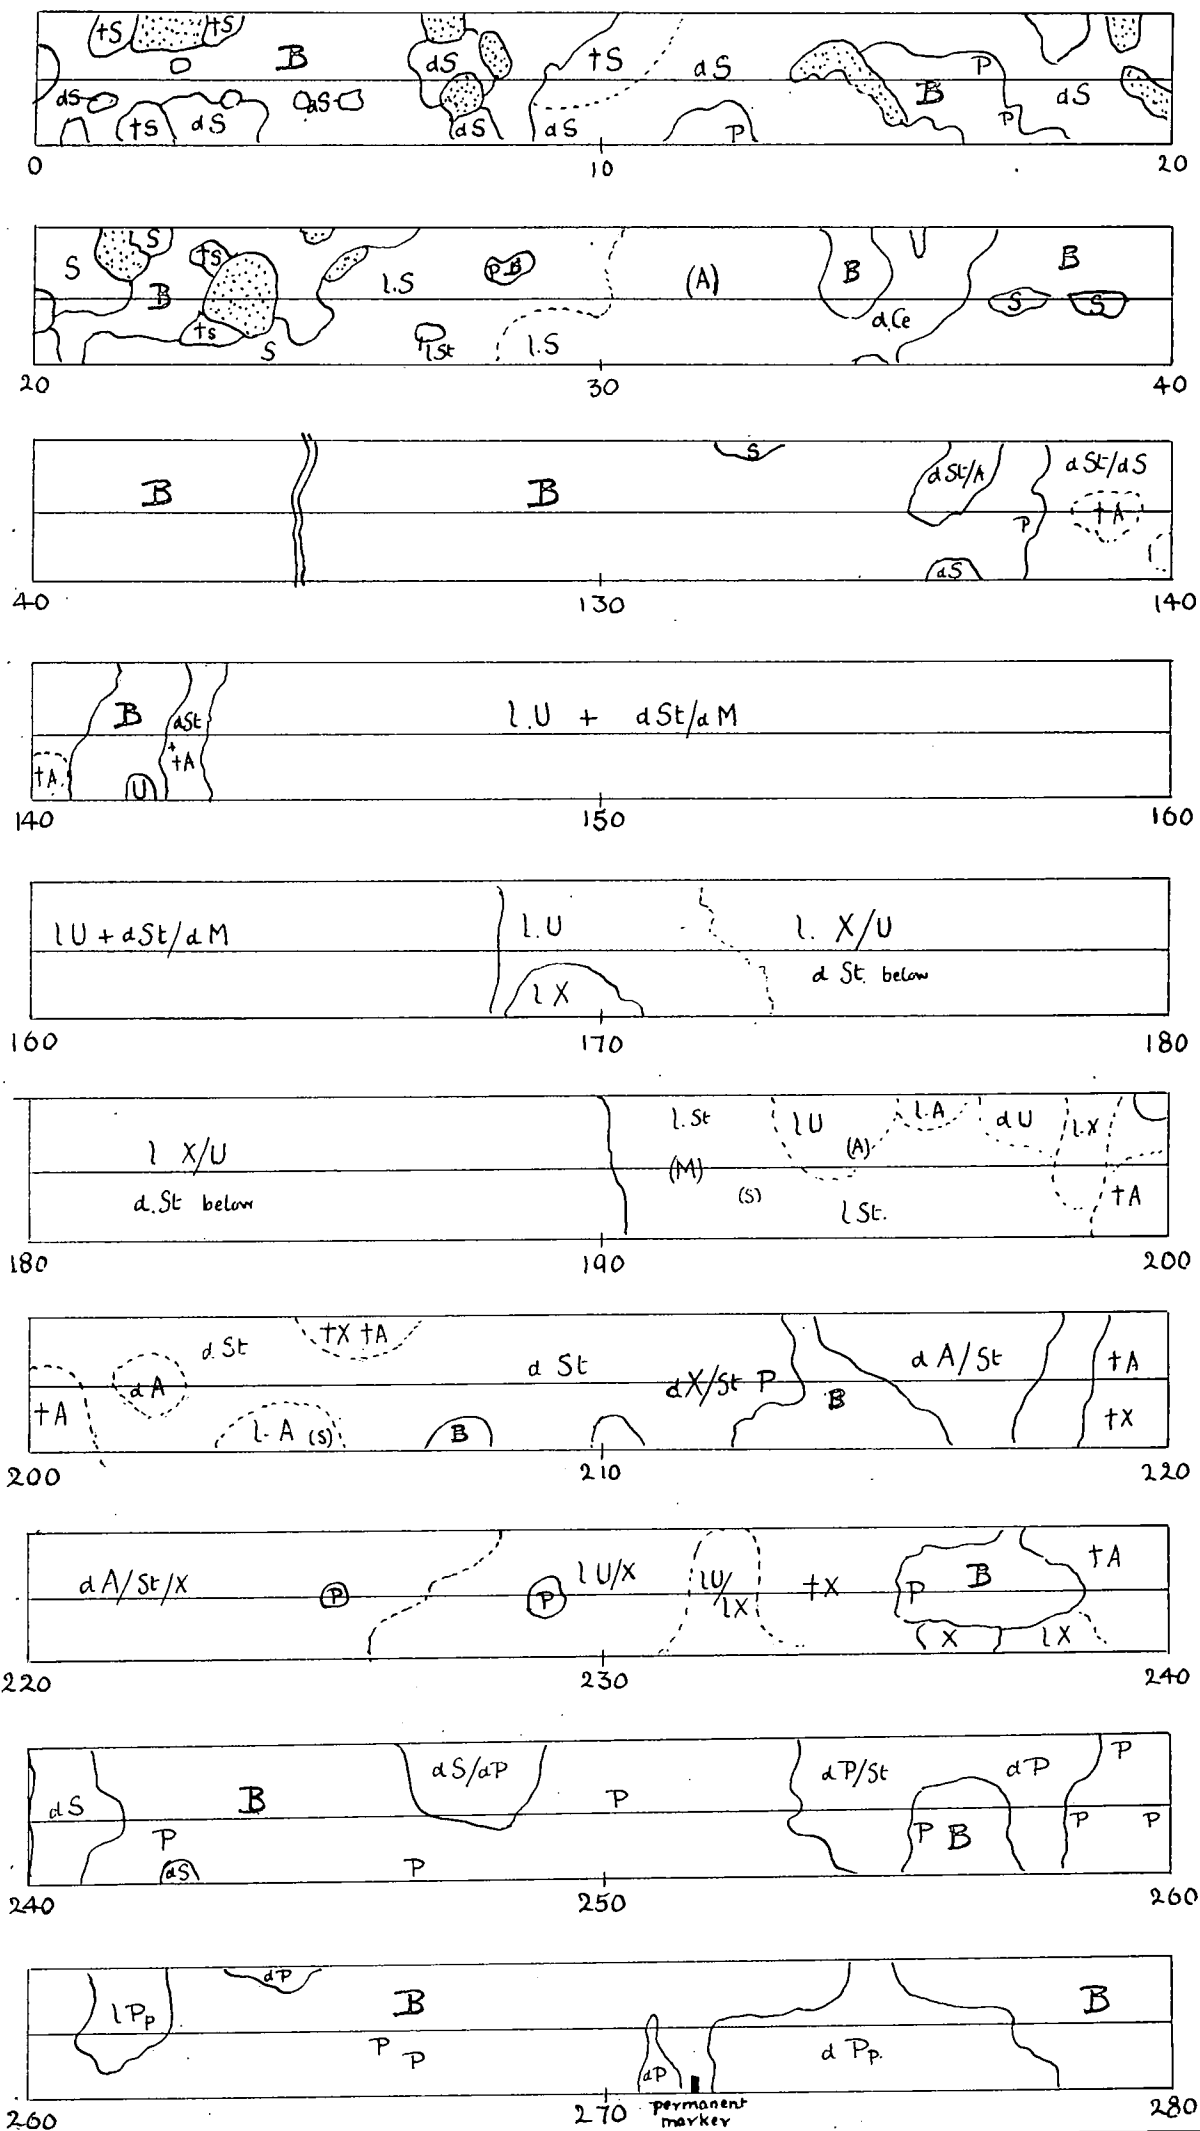 tS tS B dS tS dS P
dS dS tS dS dS dS P B P dS
0 10 20
S lS tS l.S P B (A) B B
B ts S P lSt l.S d.Ce S S
20 30 40
B B S dSt/A dSt/dS
P tA dS
40 130 140
B dSt l.U + dSt/dM
tA U + tA
140 150 160
lU + dSt/dM l.U l. X/U
l X d St. below
160 170 180
l X/U l.St lU (A) l.A dU l.X
d.St below (M) (S) l St. tA
180 190 200
d.St tX tA d St d A/St tA
tA dA l.A (S) B dX/St P B tX
200 210 220
dA/St/X P P lU/X lU/lX tX P B tA
X lX
220 230 240
dS B dS/dP P dP/St dP P
P dS P P B P P
240 250 260
lPp dP B B
P P dP d Pp.
260 270 280
permanent
marker